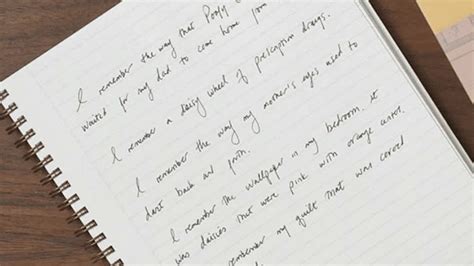 I remember the way that Poopy
waited for my dad to come home from
I remember a daisy wheel of prescription drugs.
I remember the way my mother's eyes used to
dart back and forth.
I remember the wallpaper in my bedroom. it
was daisies that were pink with orange centers.
remember my quilt that was covered